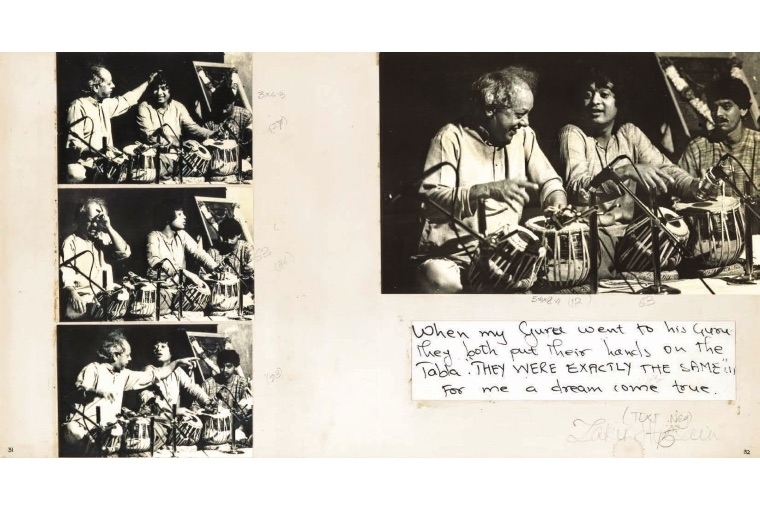 When my Guru went to his Guru
they both put their hands on the
Tabla. "THEY WERE EXACTLY THE SAME"!!
For me a dream come true.
(TEXT Neg)
Zakir Hussain
31
32